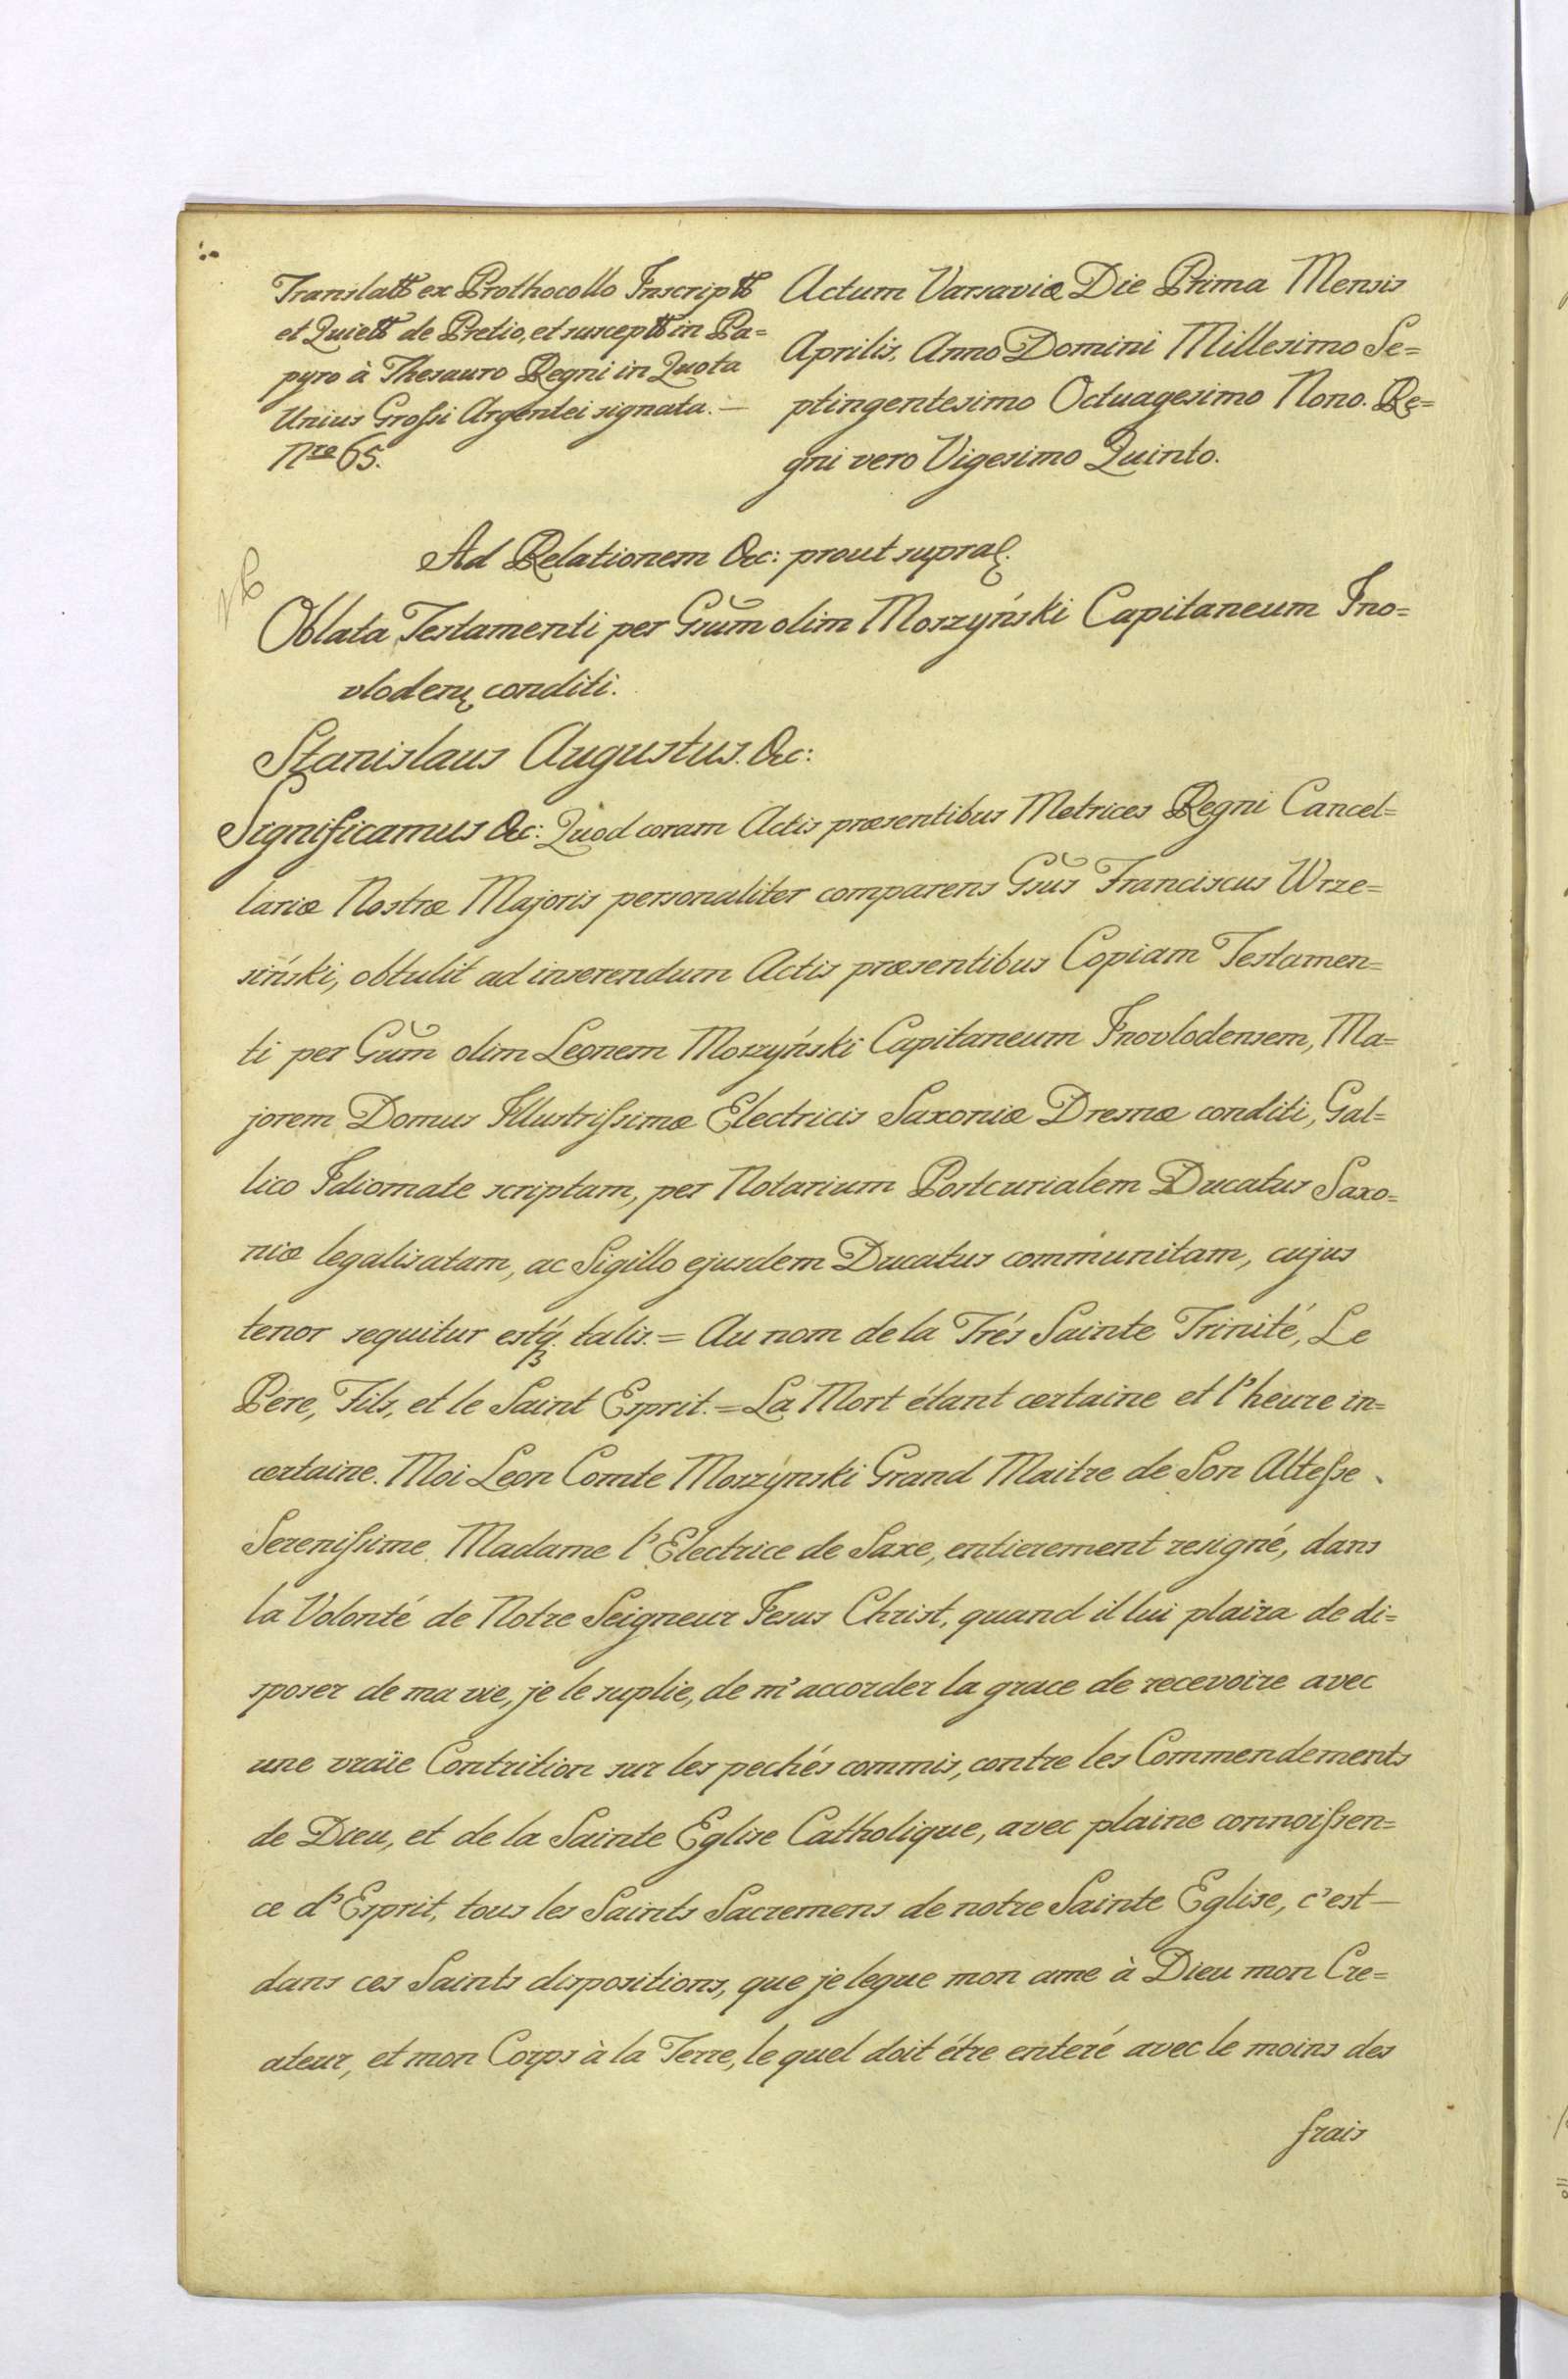 Translatt ex Prothocollo Inscriptt
et Quiett de Pretio, et susceptt in Pa=
pyro à Thesauro Regni in Quota
Unius Grossi Argentei signata. —
Nro 65.
Actum Varsaviæ Die Prima Mensis
Aprilis, Anno Domini Millesimo Se=
ptingentesimo Octuagesimo Nono. Re=
gni vero Vigesimo Quinto.
Ad Relationem &c: prout supra.
Oblata Testamenti per Gsum olim Moszyński Capitaneum Ino=
vlodens conditi.
Stanislaus Augustus. &c:
Significamus &c: Quod coram Actis præsentibus Metrices Regni Cancel=
lariæ Nostræ Majoris personaliter comparens Gsus Franciscus Wrze=
siński, obtulit ad inserendum Actis præsentibus Copiam Testamen=
ti per Gsum olim Leonem Moszyński Capitaneum Inovlodensem, Ma=
jorem Domus Illustrissimæ Electricis Saxoniæ Dresnæ conditi, Gal=
lico Idiomate scriptam, per Notarium Postcurialem Ducatus Saxo=
niæ legalisatam, ac Sigillo ejusdem Ducatus communitam, cujus
tenor sequitur estq talis. = Au nom de la Trés Sainte Trinité, Le
Pere, Fils, et le Saint Esprit. = La Mort étant certaine et l'heure in=
certaine. Moi Leon Comte Moszynski Grand Maitre de Son Altesse
Serenissime Madame l'Electrice de Saxe, entierement resigné, dans
la Volonté de Notre Seigneur Jesus Christ, quand il lui plaira de di=
sposer de ma vie, je le suplie, de m'accorder la grace de recevoire avec
une vraïe Contrition sur les pechés commis, contre les Commendements
de Dieu, et de la Sainte Eglise Catholique, avec plaine connoissen=
ce d'Esprit, tous les Saints Sacremens de notre Sainte Eglise, c'est —
dans ces Saints dispositions, que je legue mon ame à Dieu mon Cre=
ateur, et mon Corps à la Terre, le quel doit étre enteré avec le moins des
frais